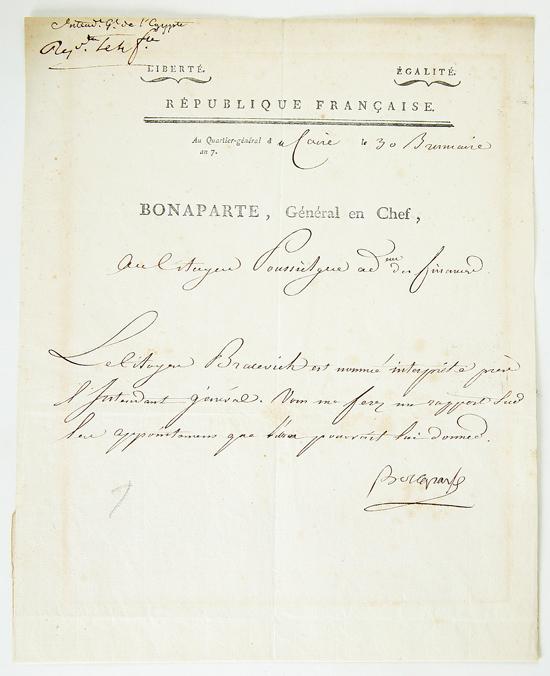 Intend. Gl. de l'Egypte
LIBERTÉ. ÉGALITÉ.
RÉPUBLIQUE FRANÇAISE.
Au Quartier-général d u Caire le 30 Brumaire
an 7.
BONAPARTE, Général en Chef,
Au Citoyen Poussielgue adeur des finances
Le Citoyen Bracevich est nommé interprète près
l'Intendant général. Vous me ferez un rapport sur
les appointemens que l'on pourrait lui donner.
Bonaparte